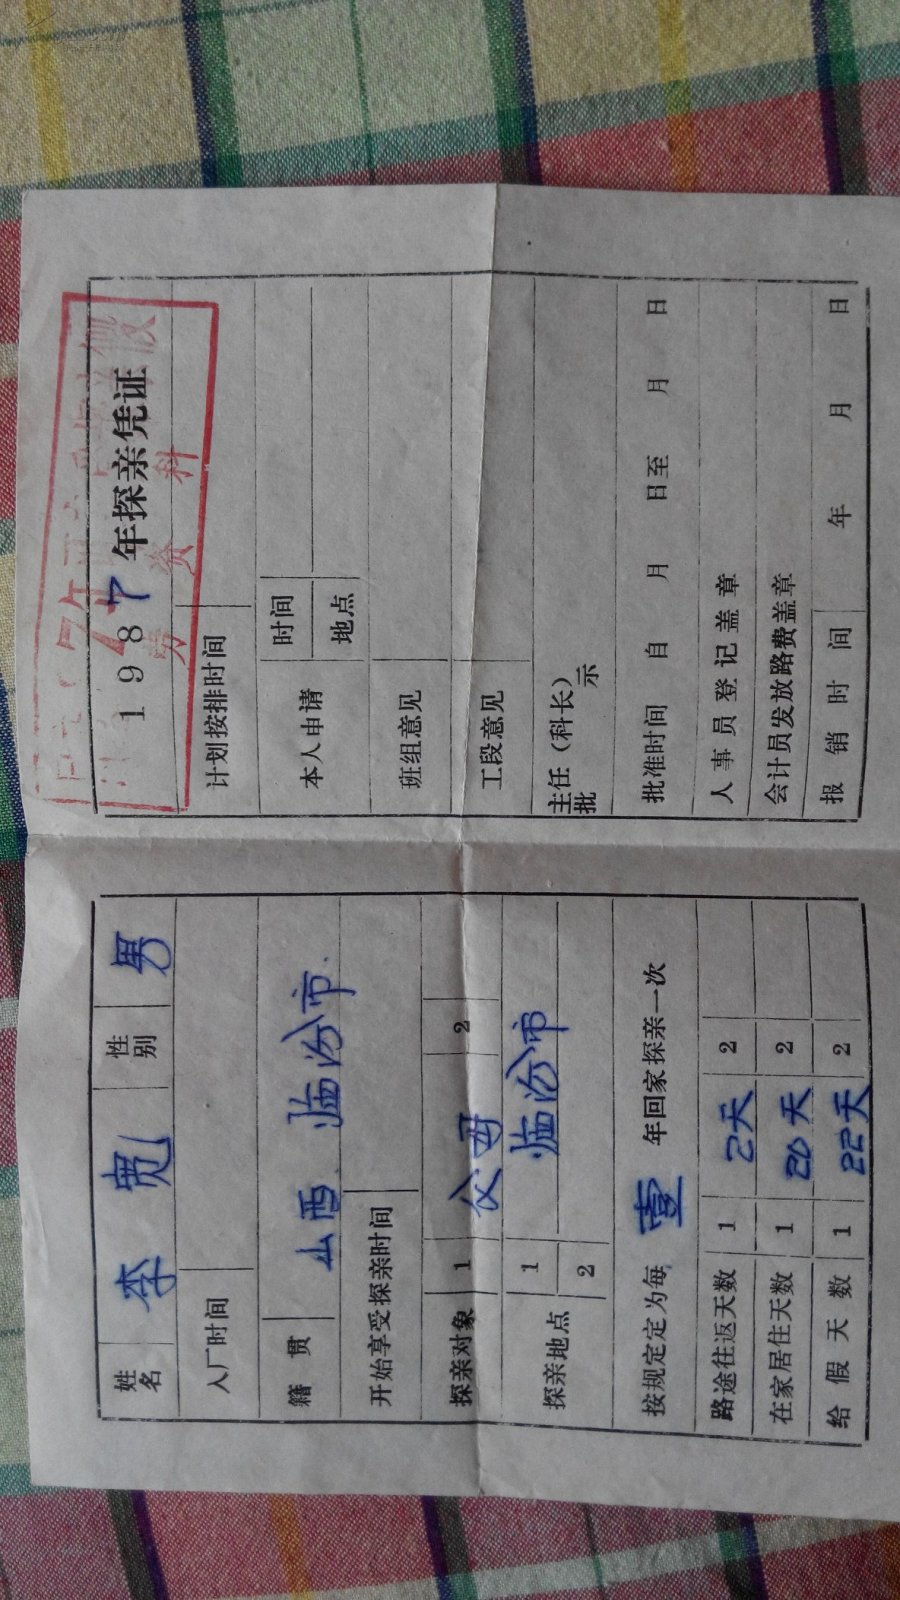 姓名 李宽 性别 男
入厂时间
籍贯 山西 临汾市.
开始享受探亲时间
探亲对象 1 父母 2
探亲地点 1 临汾市
2
按规定定为每 壹 年回家探亲一次
路途往返天数 1 2天 2
在家居住天数 1 20天 2
给假天数 1 22天 2
1987年探亲凭证
劳资科
计划按排时间
本人申请 时间
地点
班组意见
工段意见
主任(科长)批示
批准时间 自 月 日至 月 日
人事员登记盖章
会计员发放路费盖章
报销时间 年 月 日